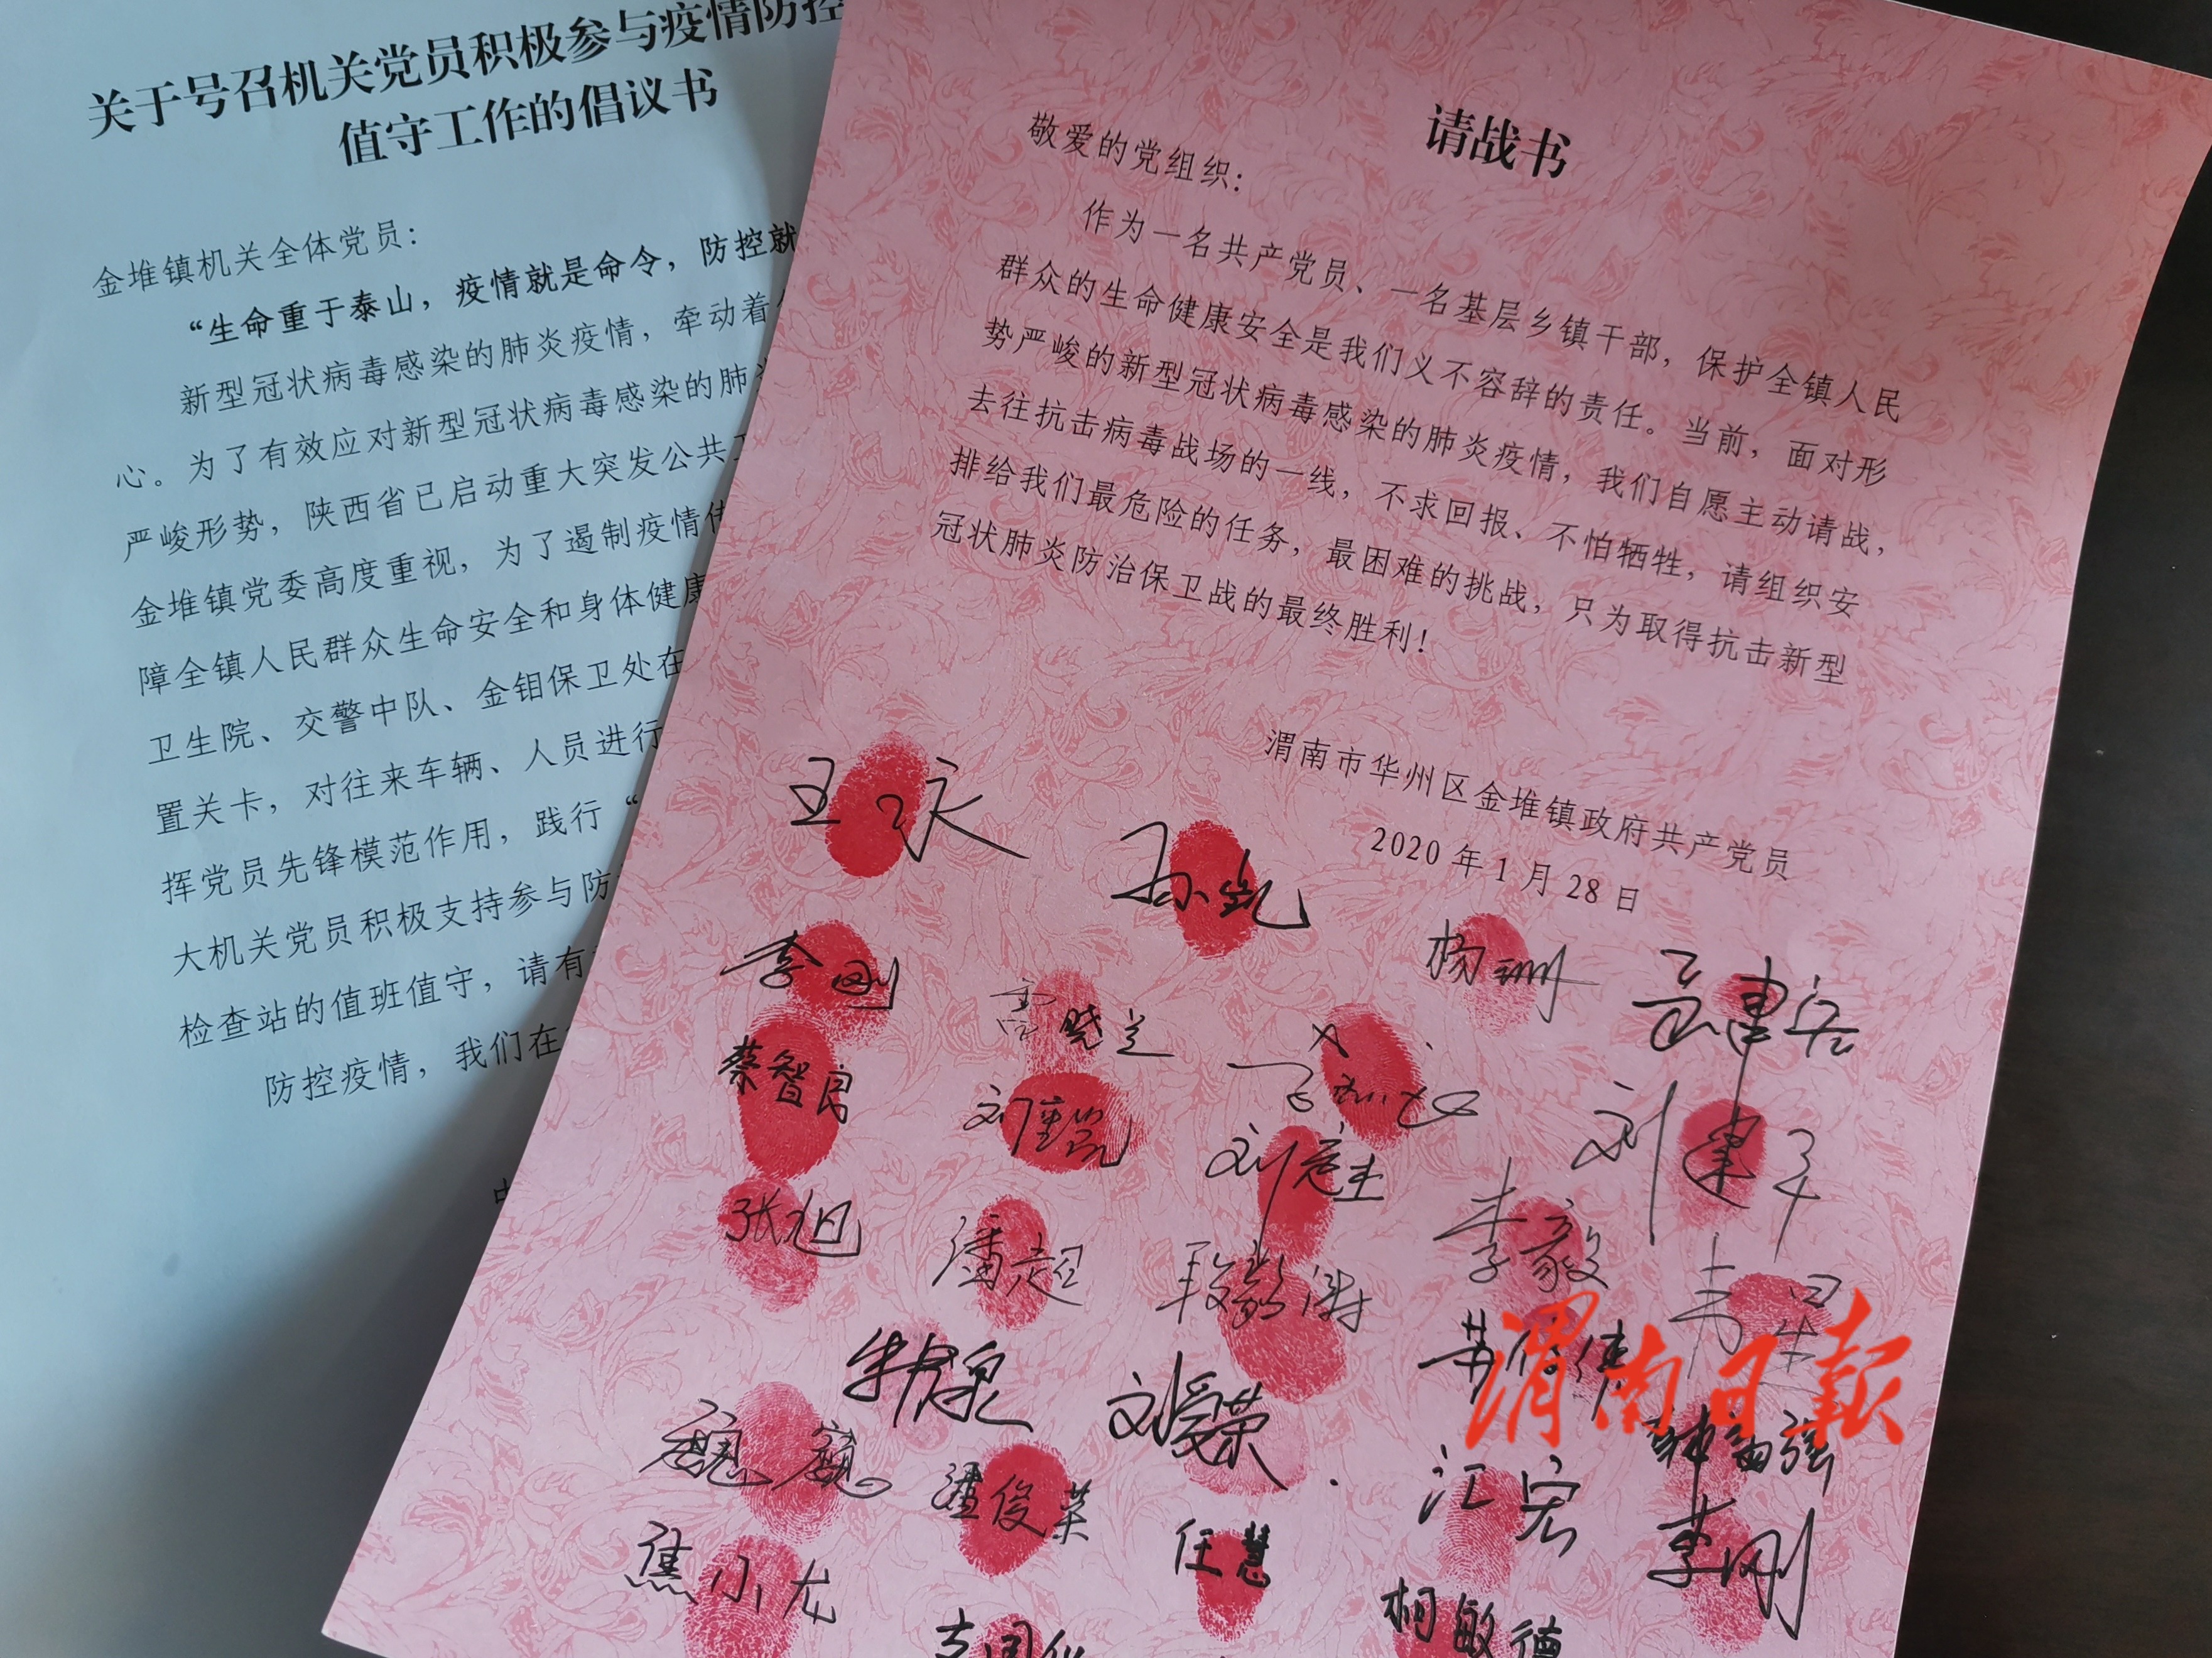 关于号召机关党员积极参与疫情防控
值守工作的倡议书
金堆镇机关全体党员：
“生命重于泰山，疫情就是命令，防控就
新型冠状病毒感染的肺炎疫情，牵动着
心。为了有效应对新型冠状病毒感染的肺炎
严峻形势，陕西省已启动重大突发公共
金堆镇党委高度重视，为了遏制疫情
障全镇人民群众生命安全和身体健康
卫生院、交警中队、金钼保卫处在
置关卡，对往来车辆、人员进行
挥党员先锋模范作用，践行“
大机关党员积极支持参与防
检查站的值班值守，请有
防控疫情，我们在
请战书
敬爱的党组织：
作为一名共产党员、一名基层乡镇干部，保护全镇人民
群众的生命健康安全是我们义不容辞的责任。当前，面对形
势严峻的新型冠状病毒感染的肺炎疫情，我们自愿主动请战，
去往抗击病毒战场的一线，不求回报、不怕牺牲，请组织安
排给我们最危险的任务，最困难的挑战，只为取得抗击新型
冠状肺炎防治保卫战的最终胜利！
渭南市华州区金堆镇政府共产党员
2020年1月28日
孙凯
李刚
杨珊
蔡智良
张旭
潘超
李毅
刘爱荣
魏巍
汇宏
李刚
焦小龙
任慧
柯敏德
渭南日报